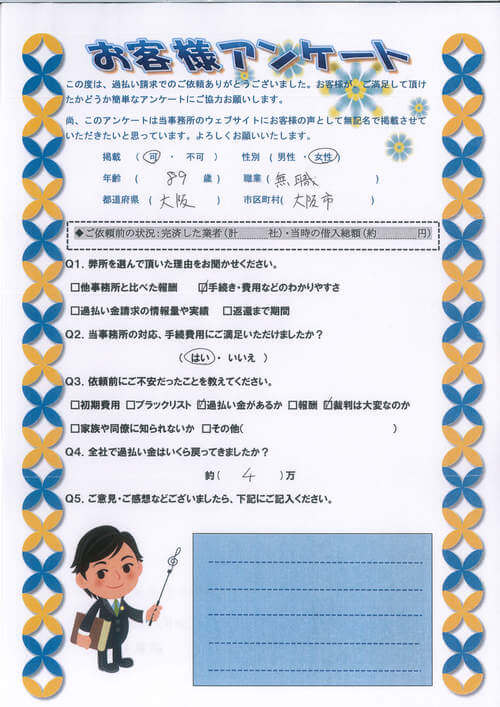 お客様アンケート
この度は、過払い請求でのご依頼ありがとうございました。お客様が、ご満足して頂け
たかどうか簡単なアンケートにご協力お願いします。
尚、このアンケートは当事務所のウェブサイトにお客様の声として無記名で掲載させて
いただきたいと思っています。よろしくお願いいたします。
掲載 (可・不可) 性別 (男性・女性)
年齢 (89歳) 職業(無職)
都道府県(大阪) 市区町村(大阪市)
◆ご依頼前の状況:完済した業者(計 社)・当時の借入総額(約 円)
Q1. 弊所を選んで頂いた理由をお聞かせください。
□他事務所と比べた報酬 ☑手続き・費用などのわかりやすさ
□過払い金請求の情報量や実績 □返還まで期間
Q2. 当事務所の対応、手続費用にご満足いただけましたか?
(はい・いいえ)
Q3. 依頼前にご不安だったことを教えてください。
□初期費用 □ブラックリスト ☑過払い金があるか □報酬 ☑裁判は大変なのか
□家族や同僚に知られないか □その他( )
Q4. 全社で過払い金はいくら戻ってきましたか?
約(4)万
Q5. ご意見・ご感想などございましたら、下記にご記入ください。